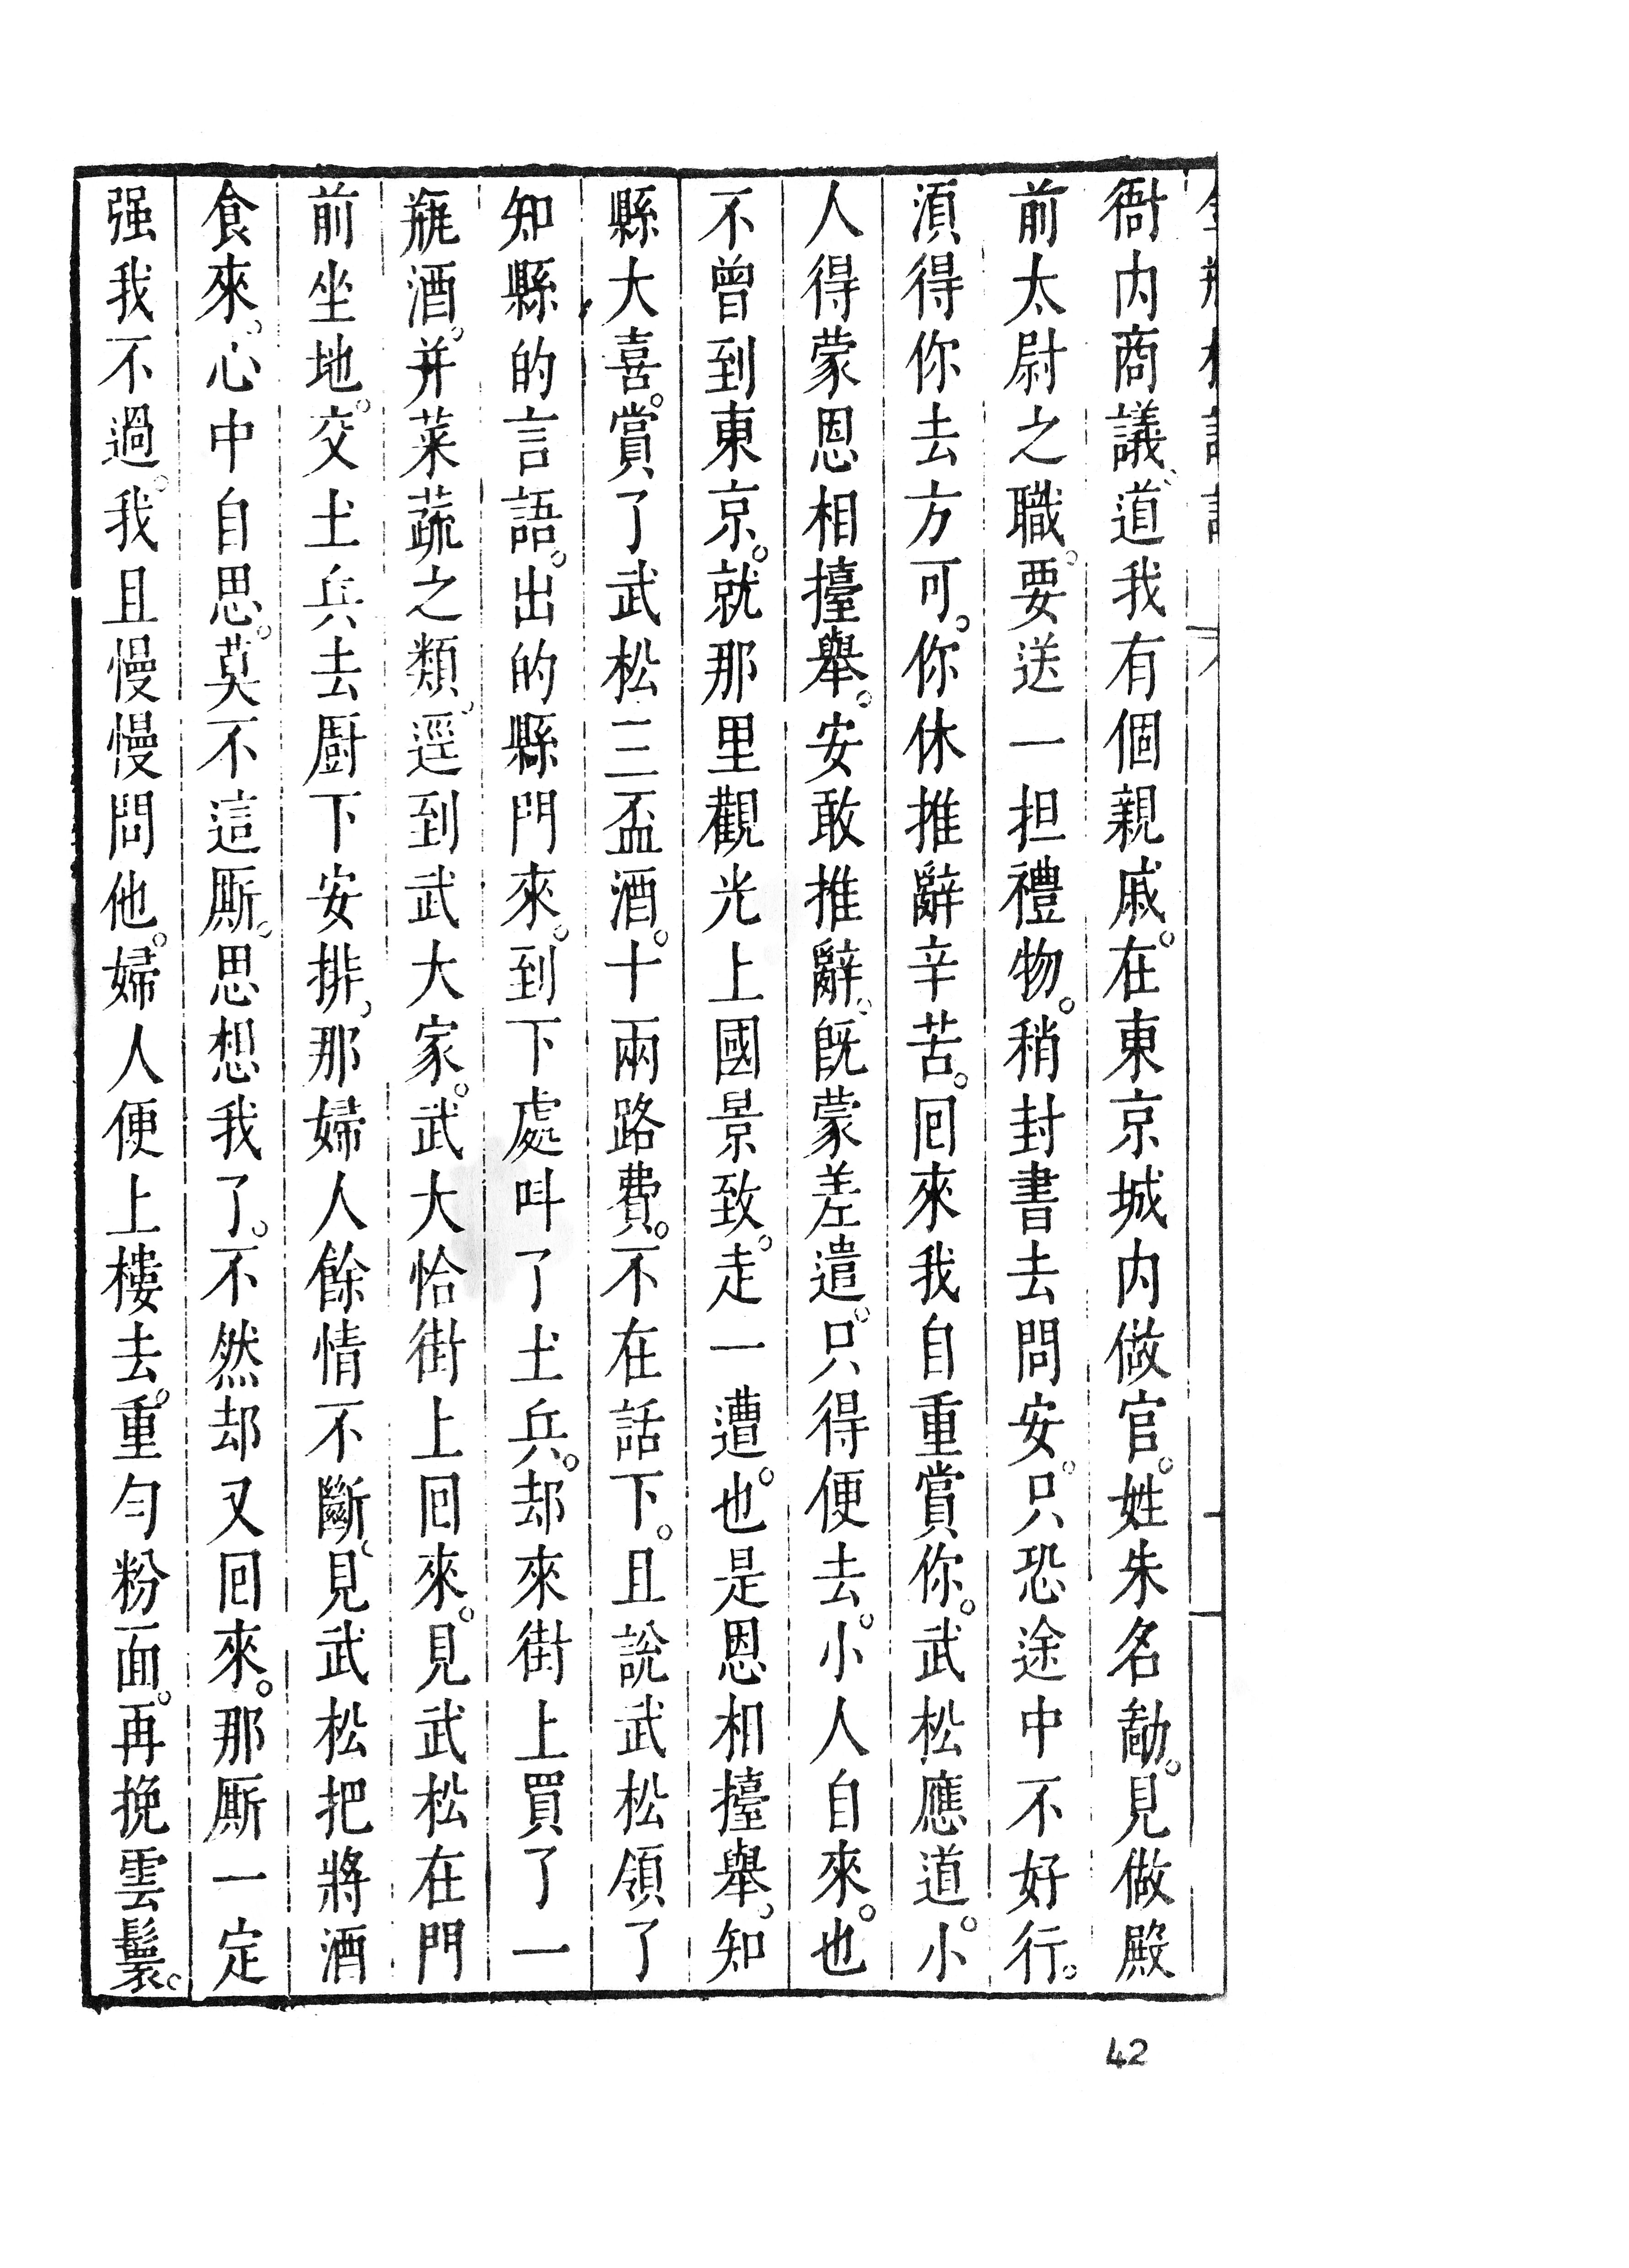 衙内商議道我有個親戚。在東京城内做官。姓朱名勔。見做殿
前太尉之職。要送一担禮物。稍封書去問安。只恐途中不好行。
湏得你去方可。你休推辭辛苦。囬來我自重賞你。武松應道。小
人得蒙恩相擡舉。安敢推辭。旣蒙差遣。只得便去。小人自來。也
不曾到東京。就那里觀光上國景致。走一遭。也是恩相擡舉。知
縣大喜。賞了武松三盃酒。十兩路費。不在話下。且說武松領了
知縣的言語。出的縣門來。到下處呌了土兵。却來街上買了一
瓶酒。并菜蔬之類。逕到武大家。武大恰街上囬來。見武松在門
前坐地。交土兵去厨下安排。那婦人餘情不斷。見武松把將酒
食來。心中自思。莫不這厮。思想我了。不然却又囬來。那厮一定
强我不過。我且慢慢問他。婦人便上樓去。重匀粉面。再挽雲鬟。
42